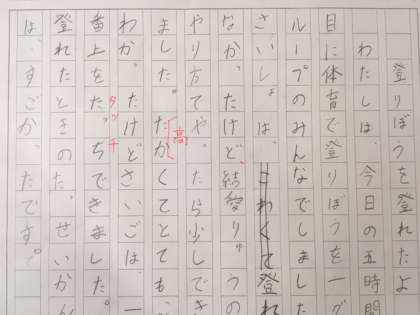 登りぼうを登れたよ
わたしは、今日の五時間
目に体育で登りぼうを一グ
ループのみんなでしました
さいしょは、こわくて登れ
なかったけど、結愛りゅうの
やり方でやったら少しでき
高
ました。たかくてとても
わかったけどさいごは、一
タッチ
番上をたっちできました。
登れたときのたっせいかん
は、すごかったです。